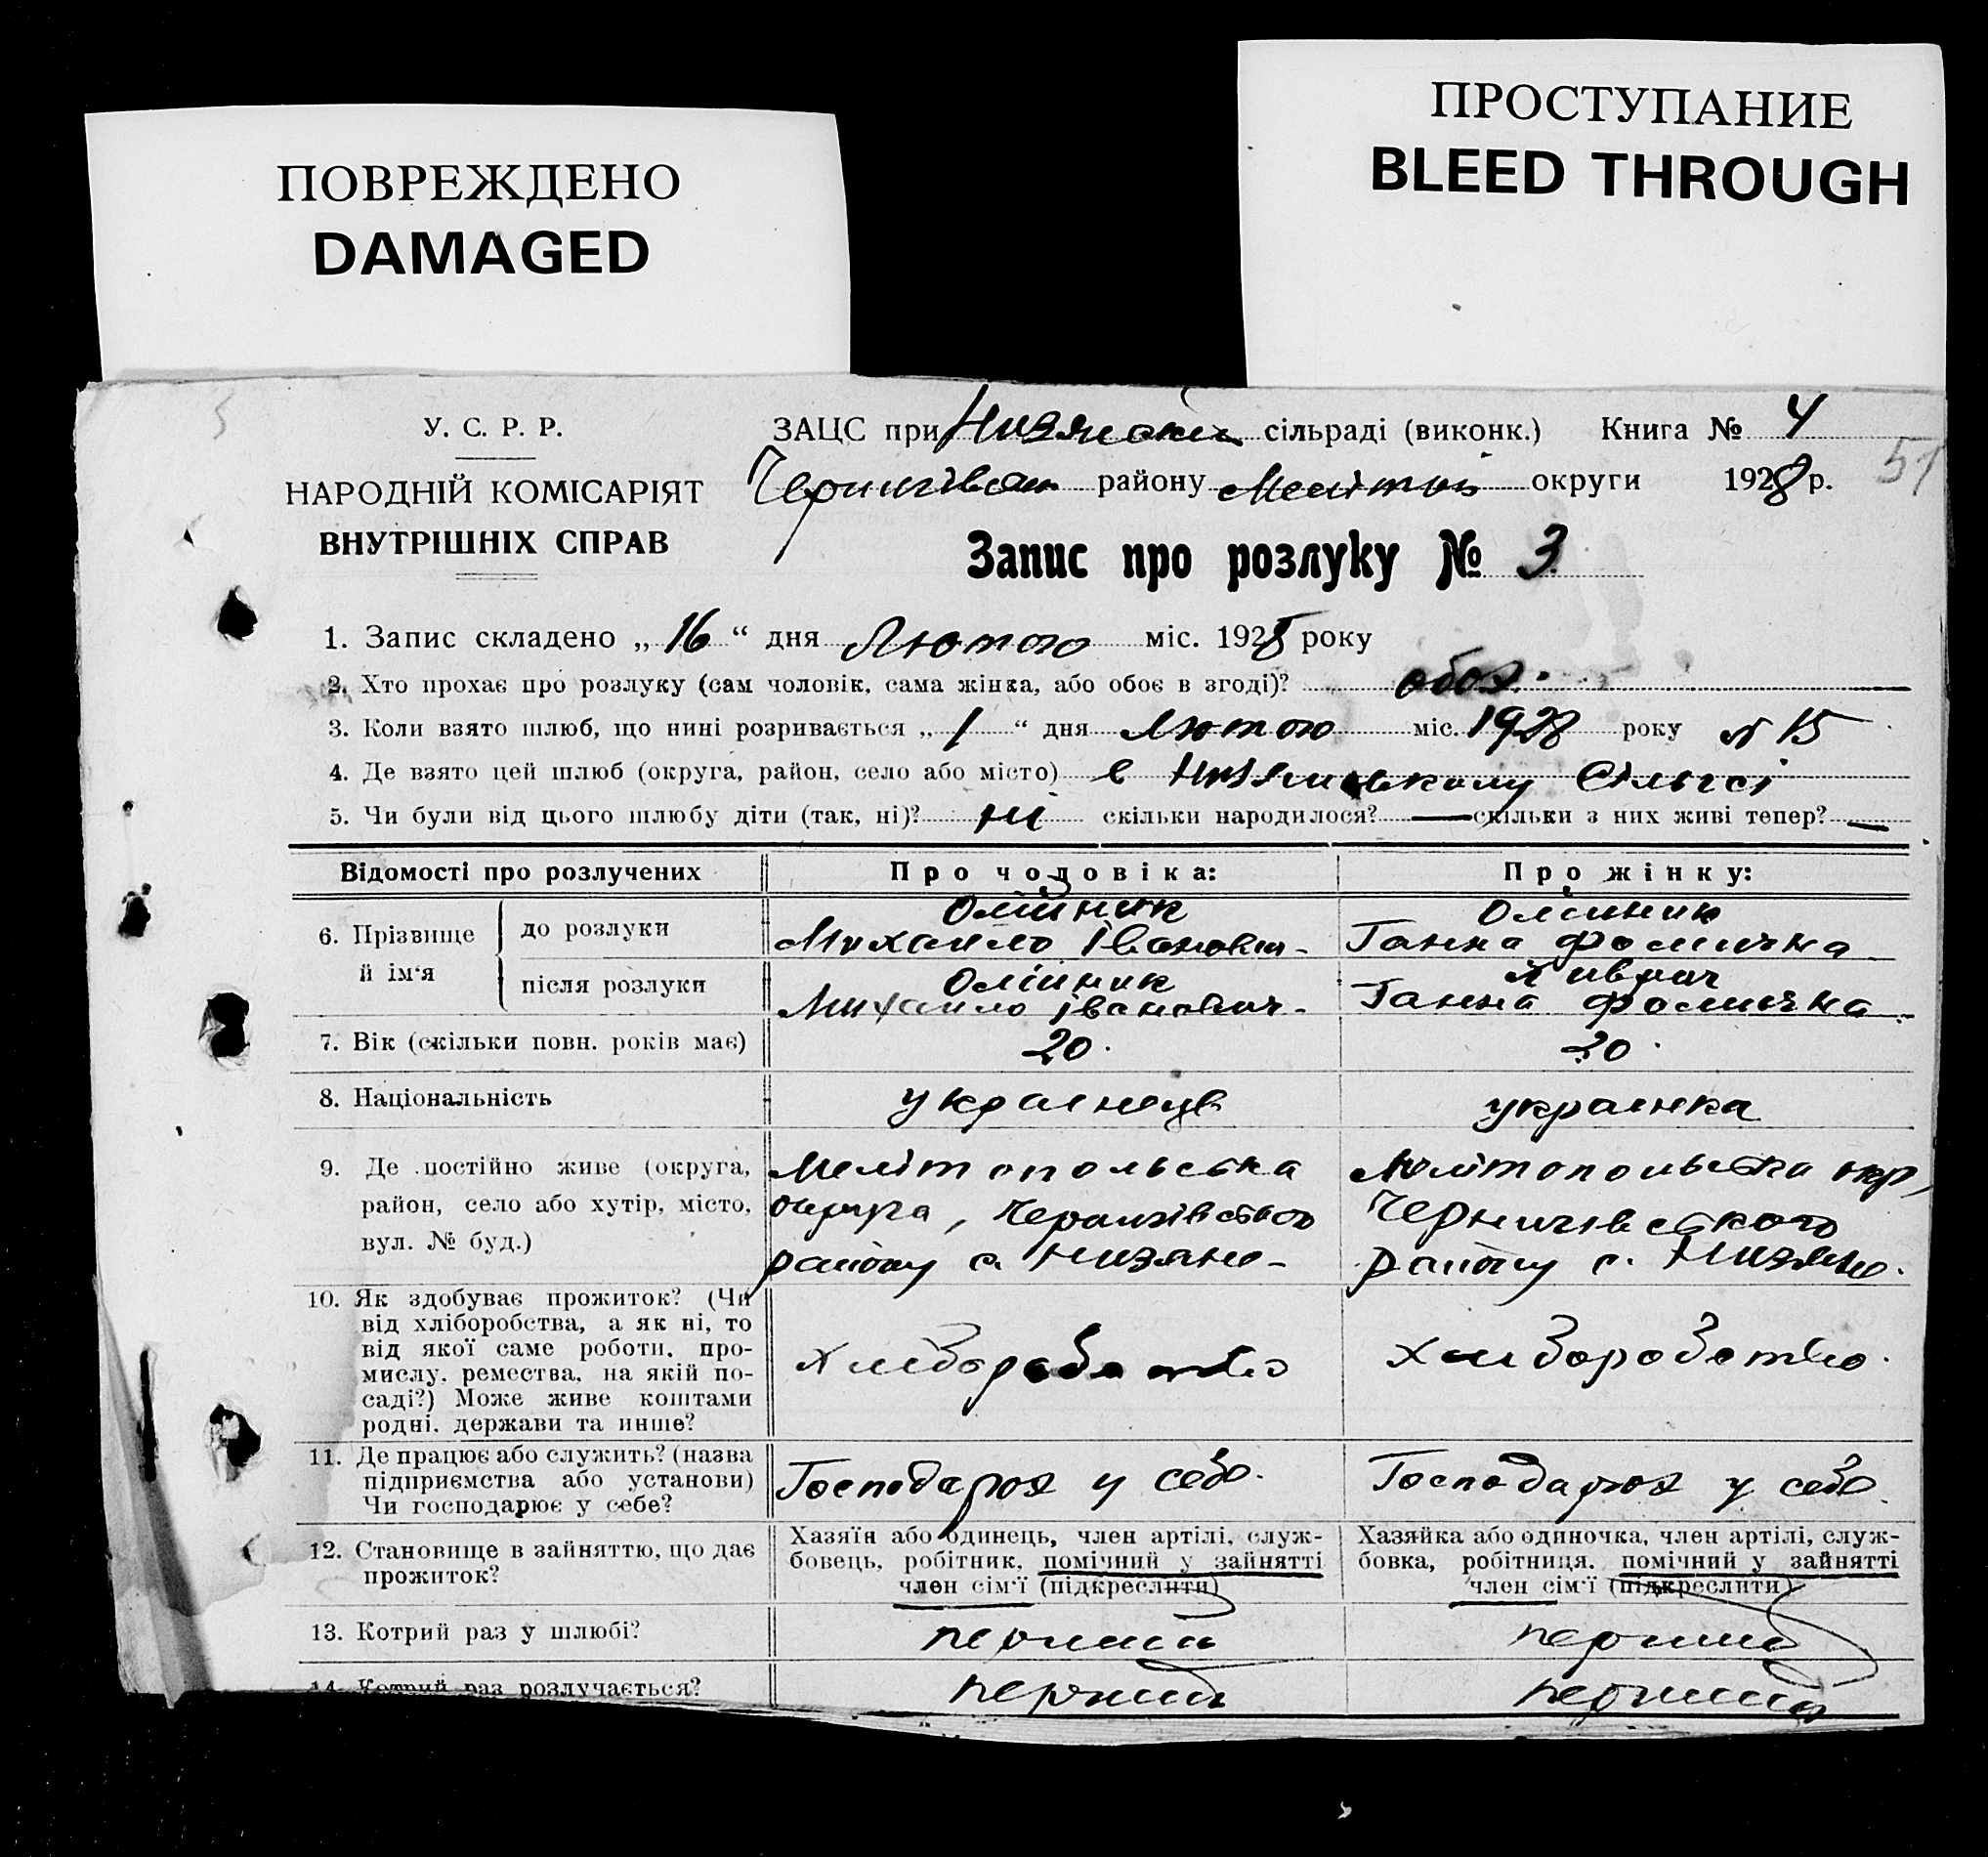 ПОВРЕЖДЕНО
DAMAGED
ПРОСТУПАНИЕ
BLEED THROUGH
У. С. Р. Р.
НАРОДНІЙ КОМІСАРІЯТ
ВНУТРІШНІХ СПРАВ
ЗАЦС при сільраді (виконк.) Книга № 4
51
району округи 1928 р.
Запис про розлуку № 3
1. Запис складено „ 16 “ дня Лютого міс. 1928 року
2. Хто прохає про розлуку (сам чоловік, сама жінка, або обоє в згоді)? обоє.
3. Коли взято шлюб, що нині розривається „ 1 “ дня Лютого міс. 1928 року № 15
4. Де взято цей шлюб (округа, район, село або місто) в
5. Чи були від цього шлюбу діти (так, ні)? ні скільки народилося? — скільки з них живі тепер? —
Відомості про розлучених
Про чоловіка:
Про жінку:
6. Прізвище й ім‘я
до розлуки
Олійник
Михайло Іванович
Олійник
Ганна Фомична
після розлуки
Олійник
Михайло Іванович
Ганна Фомична
7. Вік (скільки повн. років має)
20
20
8. Національність
українець
українка
9. Де постійно живе (округа,
район, село або хутір, місто,
вул. № буд.)
Мелітопольська
округа, Чернигівського
району с. Низяне
Мелітопольська окр,
Чернигівського
району с. Низяне.
10. Як здобуває прожиток? (Чи
від хліборобства, а як ні, то
від якої саме роботи, про-
мислу, ремества, на якій по-
саді?) Може живе коштами
родні, держави та инше?
хліборобство
хліборобство
11. Де працює або служить? (назва
підприємства або установи)
Чи господарює у себе?
Господарює у себе.
Господарює у себе.
12. Становище в зайняттю, що дає
прожиток?
Хазяїн або одинець, член артілі, служ-
бовець, робітник, помічний у зайнятті
член сім‘ї (підкреслити)
Хазяйка або одиночка, член артілі, служ-
бовка, робітниця, помічний у зайнятті
член сім‘ї (підкреслити)
13. Котрий раз у шлюбі?
перший
перший
14. Котрий раз розлучається?
перший
перший